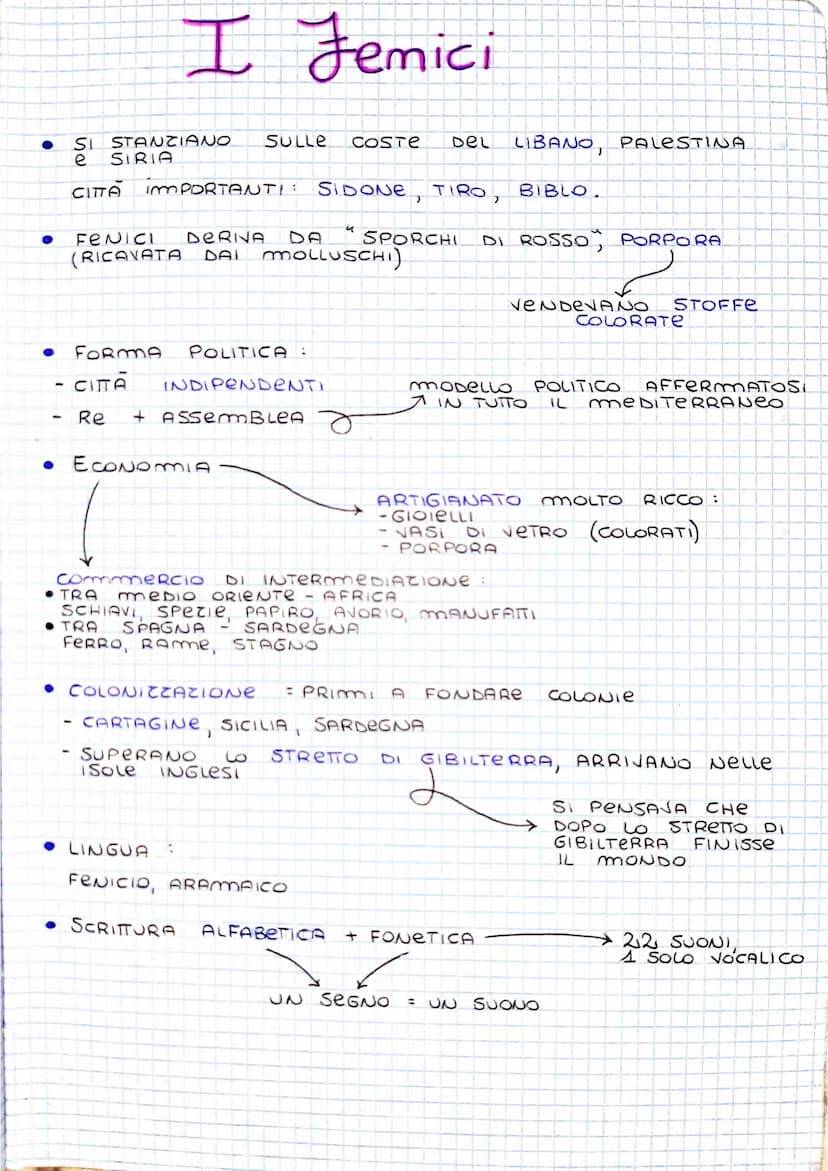 I Fenici
• SI STANZIANO SULLE COSTE DEL LIBANO, PALESTINA
E SIRIA
CITTÀ IMPORTANTI: SIDONE, TIRO, BIBLO.
• FENICI DERIVA DA "SPORCHI DI ROSSO", PORPORA
(RICAVATA DAI MOLLUSCHI)
VENDEVANO STOFFE
COLORATE
• FORMA POLITICA:
- CITTÀ INDIPENDENTI
- RE + ASSEMBLEA
MODELLO POLITICO AFFERMATOSI
IN TUTTO IL MEDITERRANEO
• ECONOMIA
ARTIGIANATO MOLTO RICCO:
- GIOIELLI
- VASI DI VETRO (COLORATI)
- PORPORA
COMMERCIO DI INTERMEDIAZIONE:
• TRA MEDIO ORIENTE - AFRICA
SCHIAVI, SPEZIE, PAPIRO, AVORIO, MANUFATTI
• TRA SPAGNA - SARDEGNA
FERRO, RAME, STAGNO
• COLONIZZAZIONE = PRIMI A FONDARE COLONIE
- CARTAGINE, SICILIA, SARDEGNA
- SUPERANO LO STRETTO DI GIBILTERRA, ARRIVANO NELLE
ISOLE INGLESI
SI PENSAVA CHE
DOPO LO STRETTO DI
GIBILTERRA FINISSE
IL MONDO
• LINGUA:
FENICIO, ARAMAICO
• SCRITTURA ALFABETICA + FONETICA
22 SUONI,
1 SOLO VOCALICO
UN SEGNO = UN SUONO